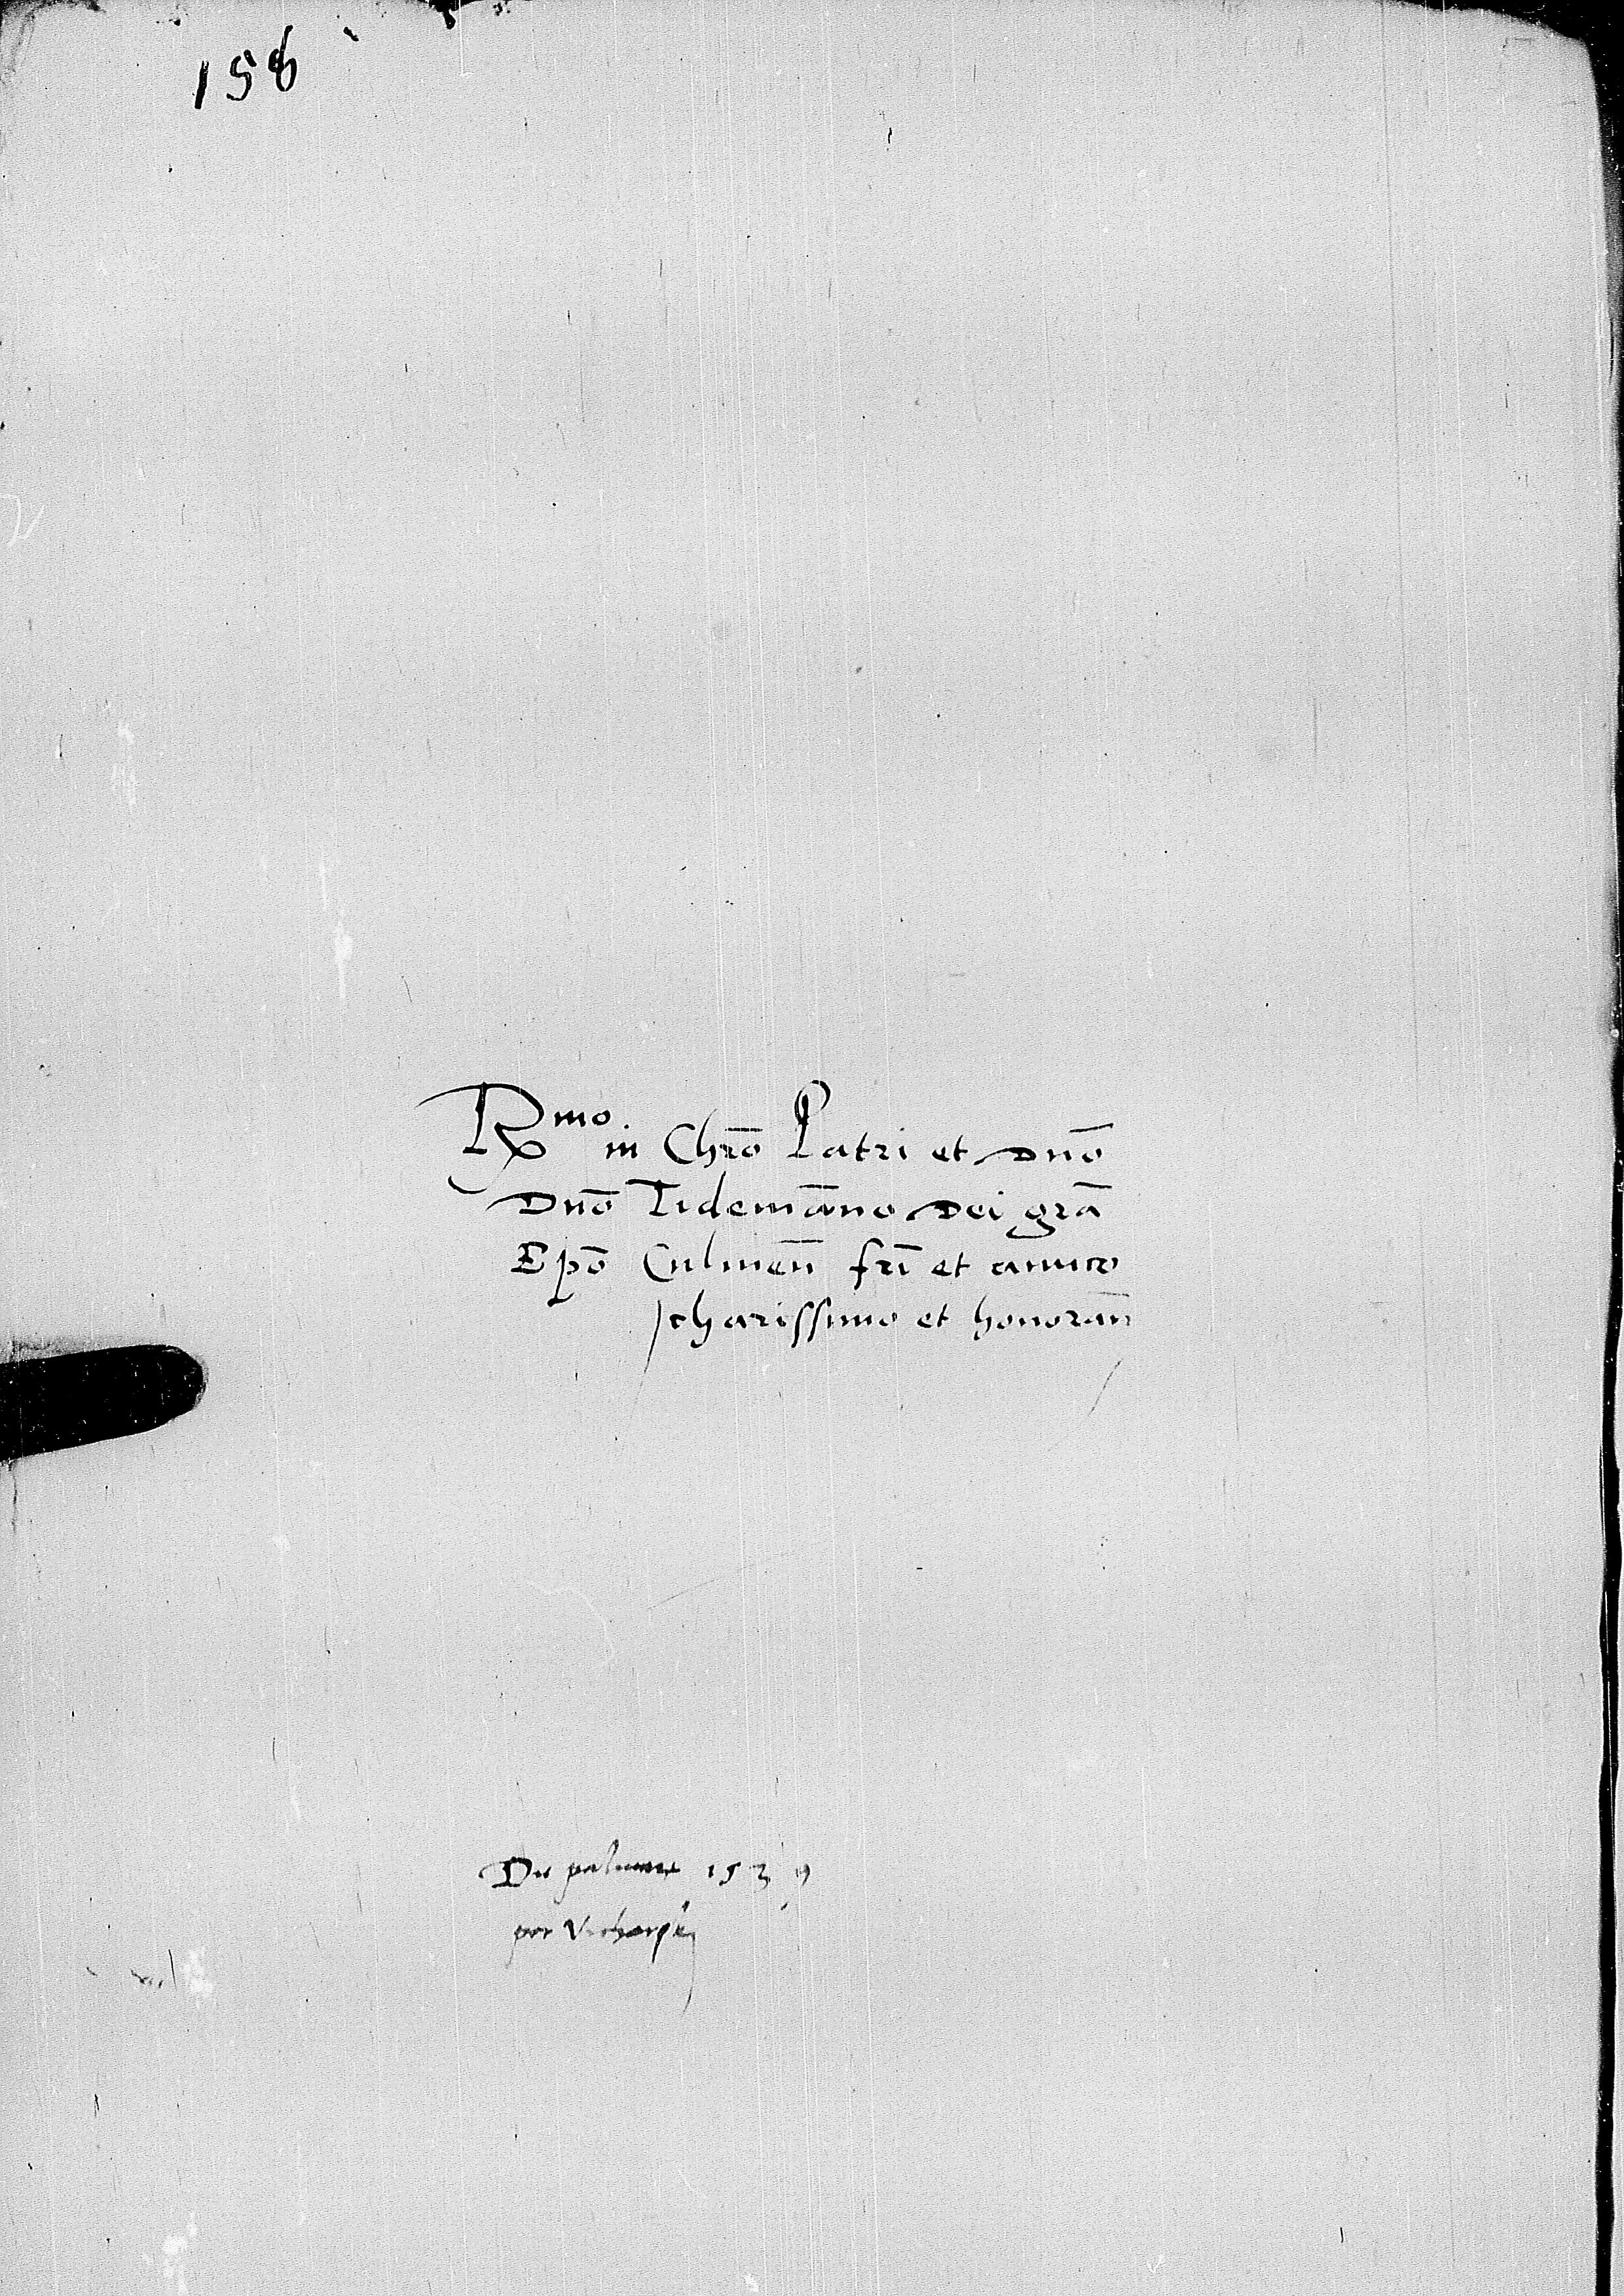 158
Rmo in Chro͞ Patri et dno͞
Dno͞ Tidema͞no Dei gra͞
Epo͞ Culmen͞ fri͞ et amico
charissimo et honoran͞
1539